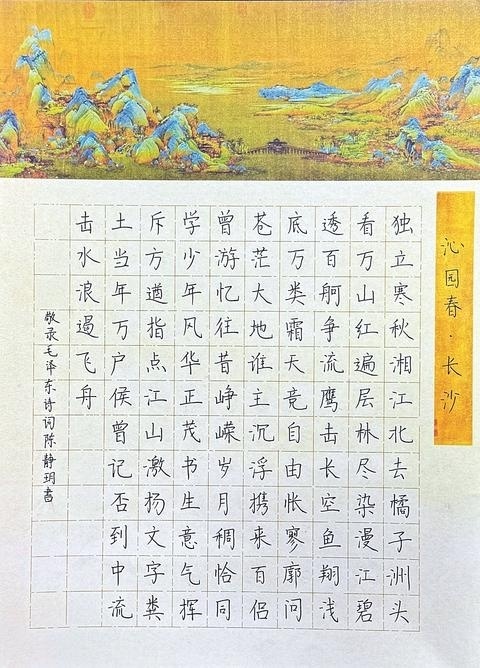 沁园春·长沙
独立寒秋湘江北去橘子洲头
看万山红遍层林尽染漫江碧
透百舸争流鹰击长空鱼翔浅
底万类霜天竞自由怅寥廓问
苍茫大地谁主沉浮携来百侣
曾游忆往昔峥嵘岁月稠恰同
学少年风华正茂书生意气挥
斥方遒指点江山激扬文字粪
土当年万户侯曾记否到中流
击水浪遏飞舟
敬录毛泽东诗词陈静玥书